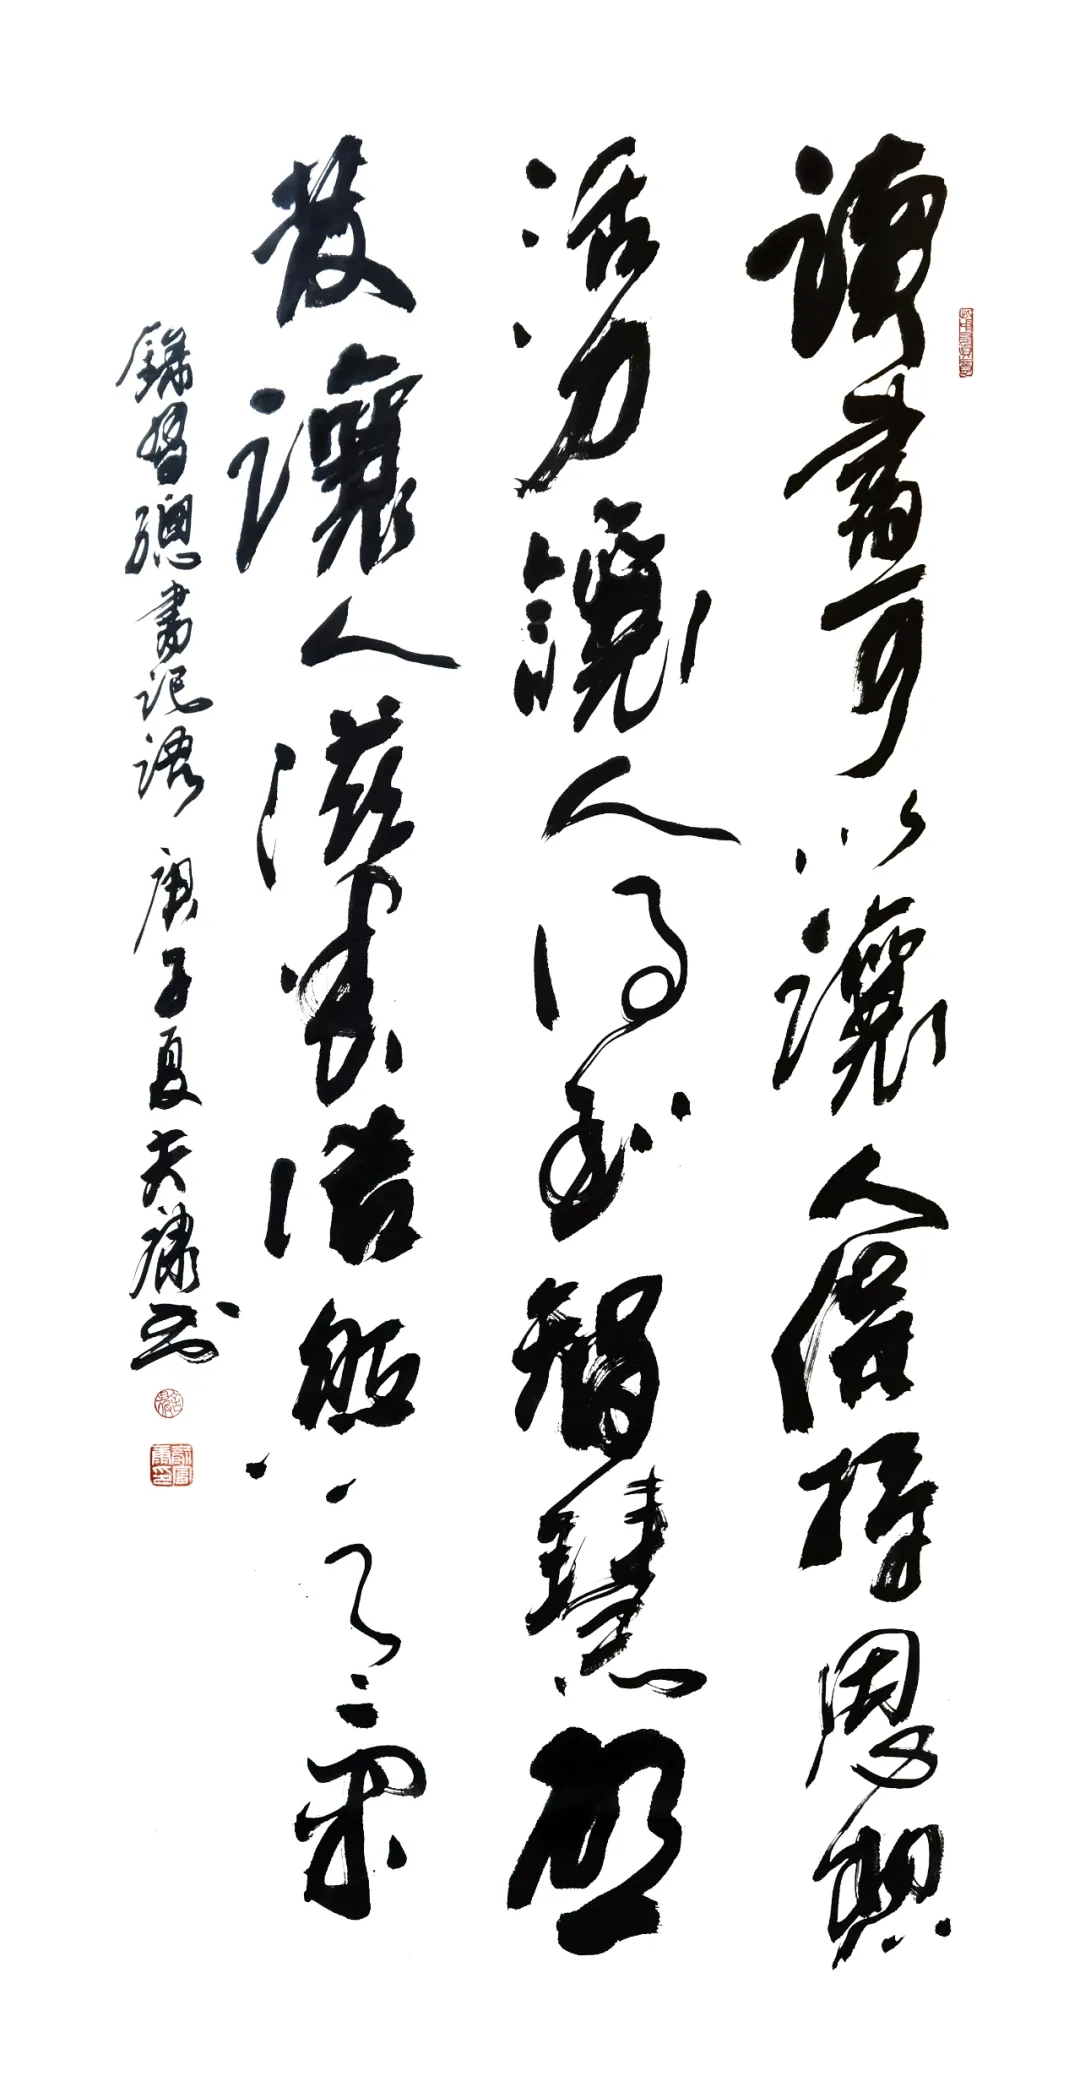 讀書可以讓人保持思想
活力讓人得到智慧啟
發讓人滋養浩然之氣
錄習總書記語 庚子夏 天 書